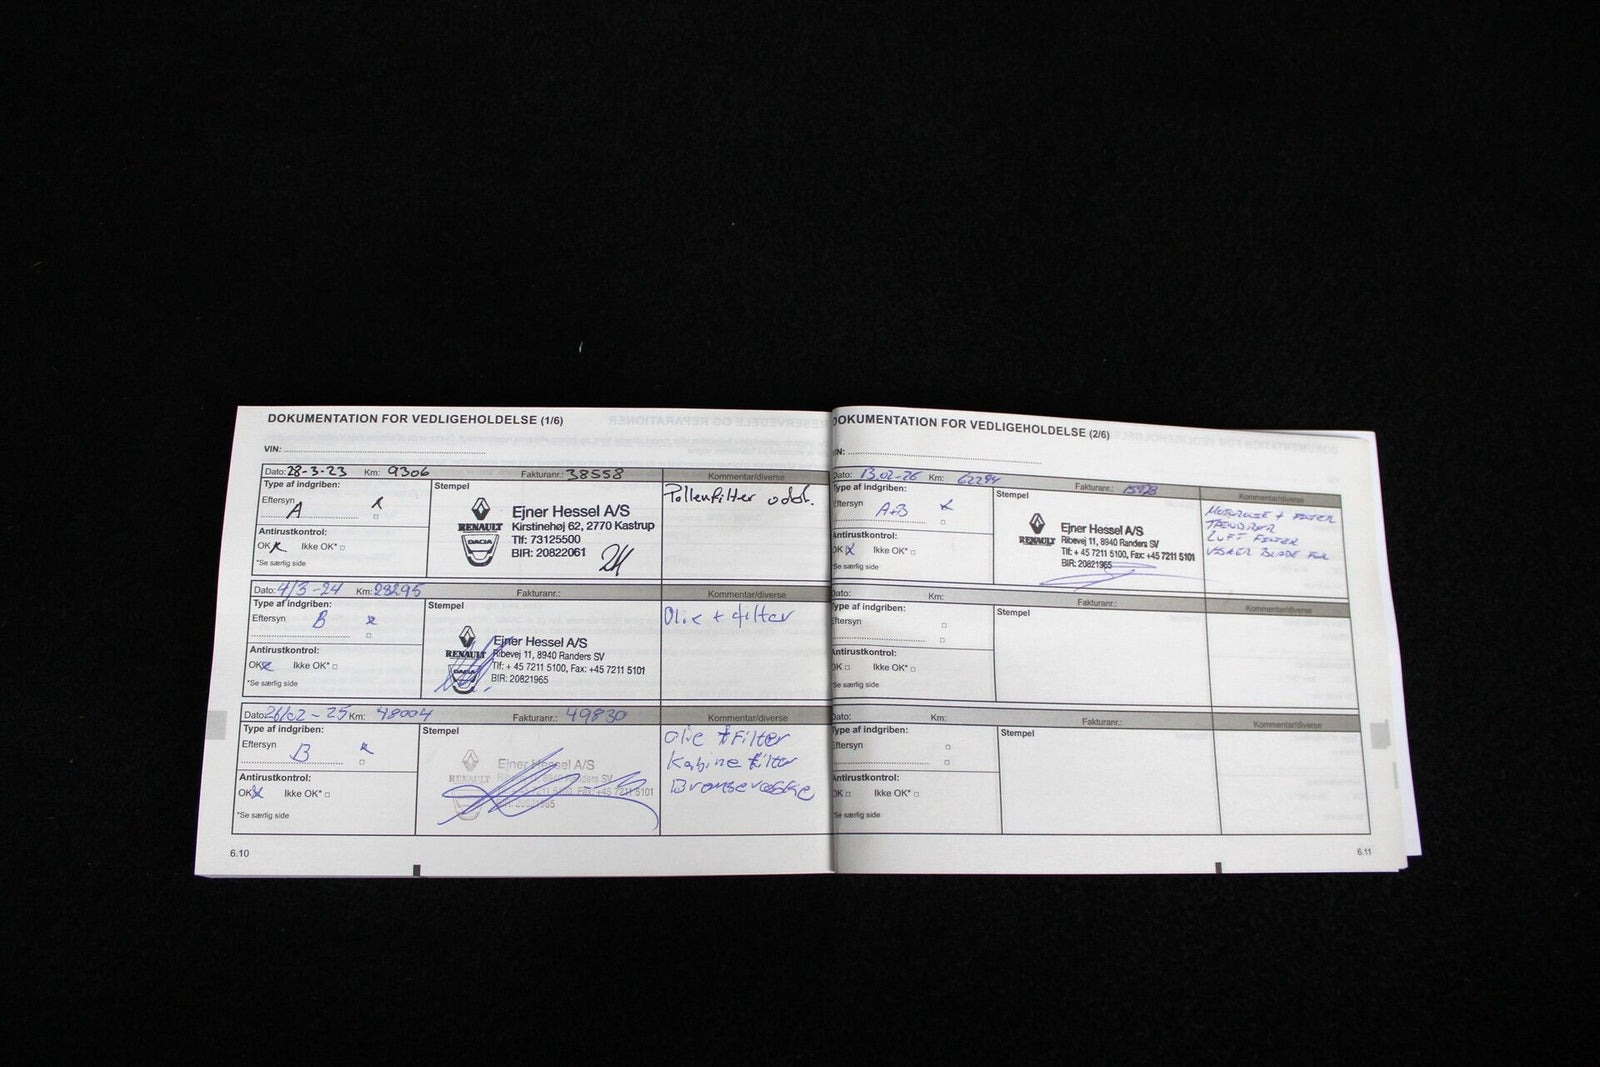 DOKUMENTATION FOR VEDLIGEHOLDELSE (1/6)
VIN:
Dato: 28-3-23 Km: 9306 Fakturanr.: 38558 Kommentar/diverse
Type af indgriben:
Eftersyn
A x
Antirustkontrol:
OK x Ikke OK*
*Se særlig side
Stempel
RENAULT
DACIA
Ejner Hessel A/S
Kirstinehøj 62, 2770 Kastrup
Tlf: 73125500
BIR: 20822061
Pollenfilter udsk.
Dato: 4/3-24 Km: 28295 Fakturanr.: Kommentar/diverse
Type af indgriben:
Eftersyn B x
Antirustkontrol:
OK x Ikke OK*
*Se særlig side
Stempel
RENAULT
DACIA
Ejner Hessel A/S
Ribevej 11, 8940 Randers SV
Tlf: + 45 7211 5100, Fax: +45 7211 5101
BIR: 20821965
Olie + filter
Dato: 26/02-25 Km: 48004 Fakturanr.: 49830 Kommentar/diverse
Type af indgriben:
Eftersyn B x
Antirustkontrol:
OK x Ikke OK*
*Se særlig side
Stempel
RENAULT
Ejner Hessel A/S
Ribevej 11, 8940 Randers SV
7211 5100, Fax: +45 7211 5101
20821965
Olie + Filter
Kabine filter
Bremsevæske
6.10
DOKUMENTATION FOR VEDLIGEHOLDELSE (2/6)
Dato: 13.02-26 Km: 62294 Fakturanr.: Kommentar/diverse
Type af indgriben:
Eftersyn
A+B x
Antirustkontrol:
OK x Ikke OK*
*Se særlig side
Stempel
RENAULT
Ejner Hessel A/S
Ribevej 11, 8940 Randers SV
Tlf: + 45 7211 5100, Fax: +45 7211 5101
BIR: 20821965
MOTOROLIE + FILTER
TÆNDRØR
LUFT FILTER
VISKER BLADE FOR
Dato: Km: Fakturanr.: Kommentar/diverse
Type af indgriben:
Eftersyn
Antirustkontrol:
OK Ikke OK*
*Se særlig side
Stempel
Dato: Km: Fakturanr.: Kommentar/diverse
Type af indgriben:
Eftersyn
Antirustkontrol:
OK Ikke OK*
*Se særlig side
Stempel
6.11